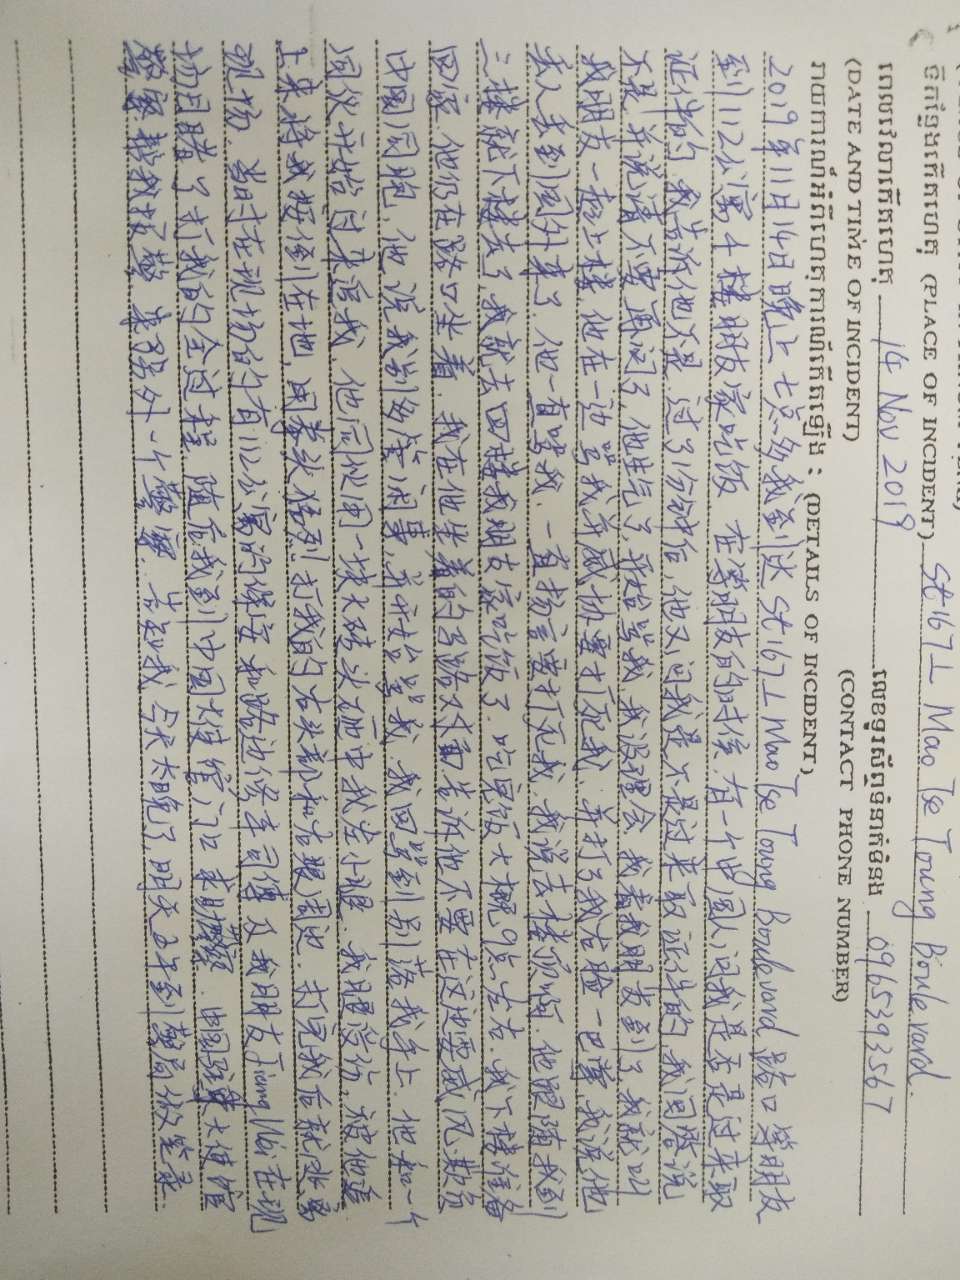 ទីកន្លែងកើតហេតុ (PLACE OF INCIDENT) St 167 ⊥ Mao Tse Toung Boulevard.
ពេលវេលាកើតហេតុ 14 Nov 2019 លេខទូរស័ព្ទទំនាក់ទំនង 0965393567
(DATE AND TIME OF INCIDENT) (CONTACT PHONE NUMBER)
រាយការណ៍អំពីហេតុការណ៍កើតឡើង : (DETAILS OF INCIDENT)
2019年11月14日晚上七点多我到达 St 167 ⊥ Mao Tse Toung Boulevard 路口等朋友
到112公寓4楼朋友家吃饭 在等朋友的时候.有一个中国人问我是否是过来取
证件的.我告诉他不是.过了1分钟后,他又问我是不是过来取证件的.我回答说
不是,并说请不要再问了.他生气了,开始骂我.我没理会.我看我朋友到了.我就叫
我朋友一起上楼,他在一边骂我并威协要打死我.并打了我右脸一巴掌.我说他
我人丢到国外来了.他一直骂我.一直扬言要打死我.我说去楼 他跟随我到
二楼就下楼去了.我就去四楼我朋友家吃饭了.吃完饭大概9点左右.我下楼准备
回家.他仍在路口坐着.我在他坐着的马路对面告诉他不要在这边耍威风.欺负
中国同胞,他说我别多管闲事,并开始骂我.我回骂到别落我手上.他和一个
同伙开始过来追我.他同伙用一块大砖头砸中我左小腿.我跟没动,被他追
上来将我按倒在地,用拳头猛烈打我的右头部和右眼周边.打完我后就逃离
现场.当时在现场的有112公寓的保安和路边停车司机及我朋友Jiang Min在现
场目睹了打我的全过程.随后我到中国大使馆门口求助警察.中国 大使馆
警察帮我报警.来了另外一个警察.告知我今天太晚了.明天上午到警局做笔录.